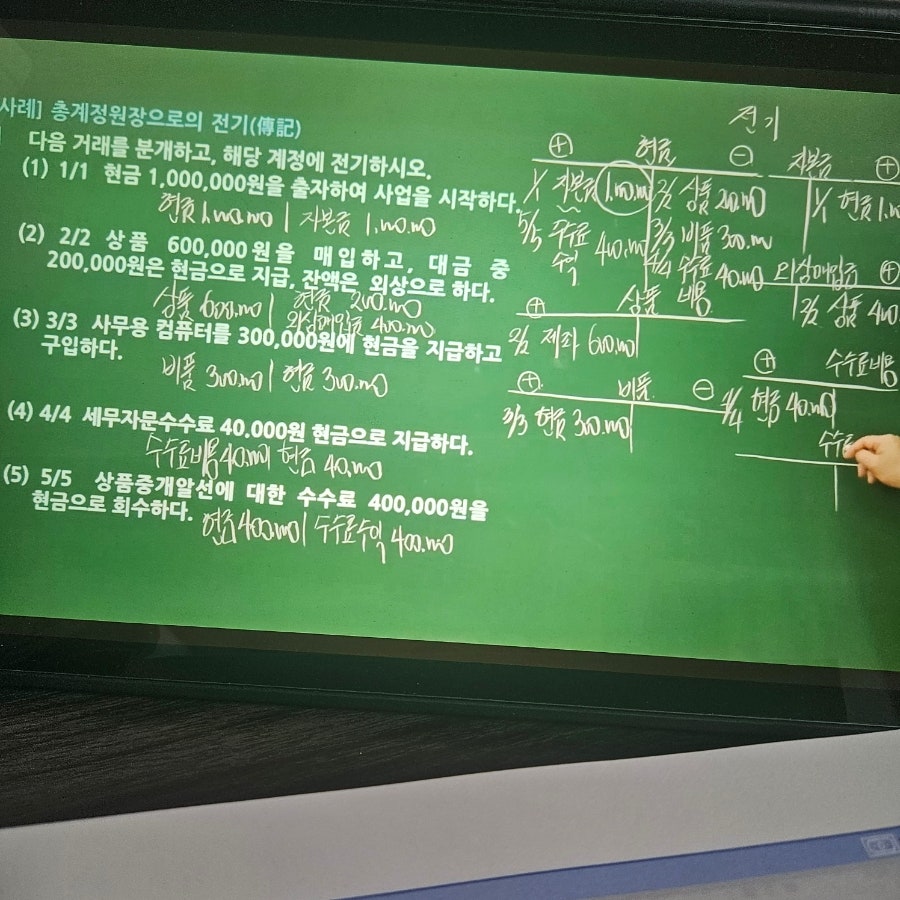 사례] 총계정원장으로의 전기(傳記)
다음 거래를 분개하고, 해당 계정에 전기하시오.
(1) 1/1 현금 1,000,000원을 출자하여 사업을 시작하다.
현금 1,000,000 | 자본금 1,000,000
(2) 2/2 상품 600,000원을 매입하고, 대금 중
200,000원은 현금으로 지급, 잔액은 외상으로 하다.
상품 600,000 | 현금 200,000
외상매입금 400,000
(3) 3/3 사무용 컴퓨터를 300,000원에 현금을 지급하고
구입하다.
비품 300,000 | 현금 300,000
(4) 4/4 세무자문수수료 40.000원 현금으로 지급하다.
수수료비용 40,000 | 현금 40,000
(5) 5/5 상품중개알선에 대한 수수료 400,000원을
현금으로 회수하다.
현금 400,000 | 수수료수익 400,000
전기
⊕ 현금 ⊖
1/1 자본금 1,000,000 | 2/2 상품 200,000
5/5 수수료 수익 400,000 | 3/3 비품 300,000
4/4 수수료 비용 40,000
자본금 ⊕
1/1 현금
외상매입금 ⊕
2/2 상품
⊕ 상품
2/2 제좌 600,000
⊕ 비품 ⊖
3/3 현금 300,000
⊕ 수수료비용
4/4 현금 40,000